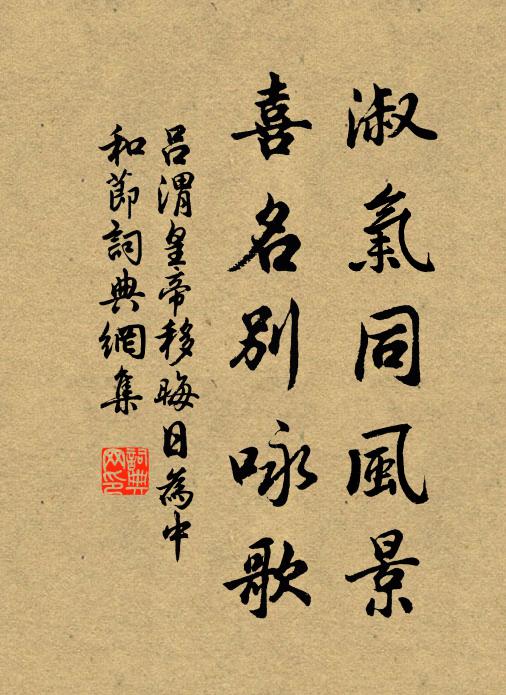 淑氣同風景
喜名別咏歌
呂渭皇帝移晦日為中
和節詞典網集
詞典網印